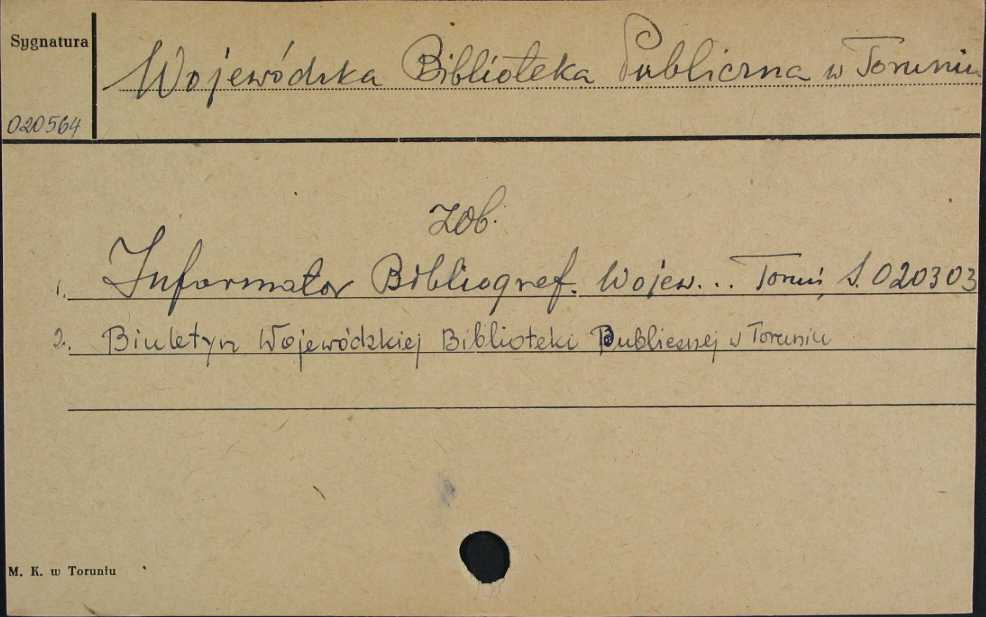 Sygnatura
Wojewódzka Biblioteka Publiczna w Toruniu
020564
zob.
1. Informator Bibliograf. Wojew... Toruń, S. 020303
2. Biuletyn Wojewódzkiej Biblioteki Publicznej w Toruniu
M. K. w Toruniu